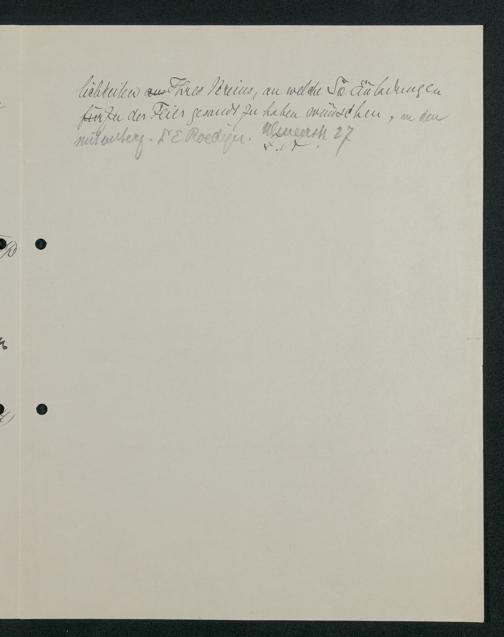 lichkeiten aus Ihres Vereins, an welche So Einladungen
für zu der Feier gesandt zu haben wünschen, an den
Dr E Roediger. 27